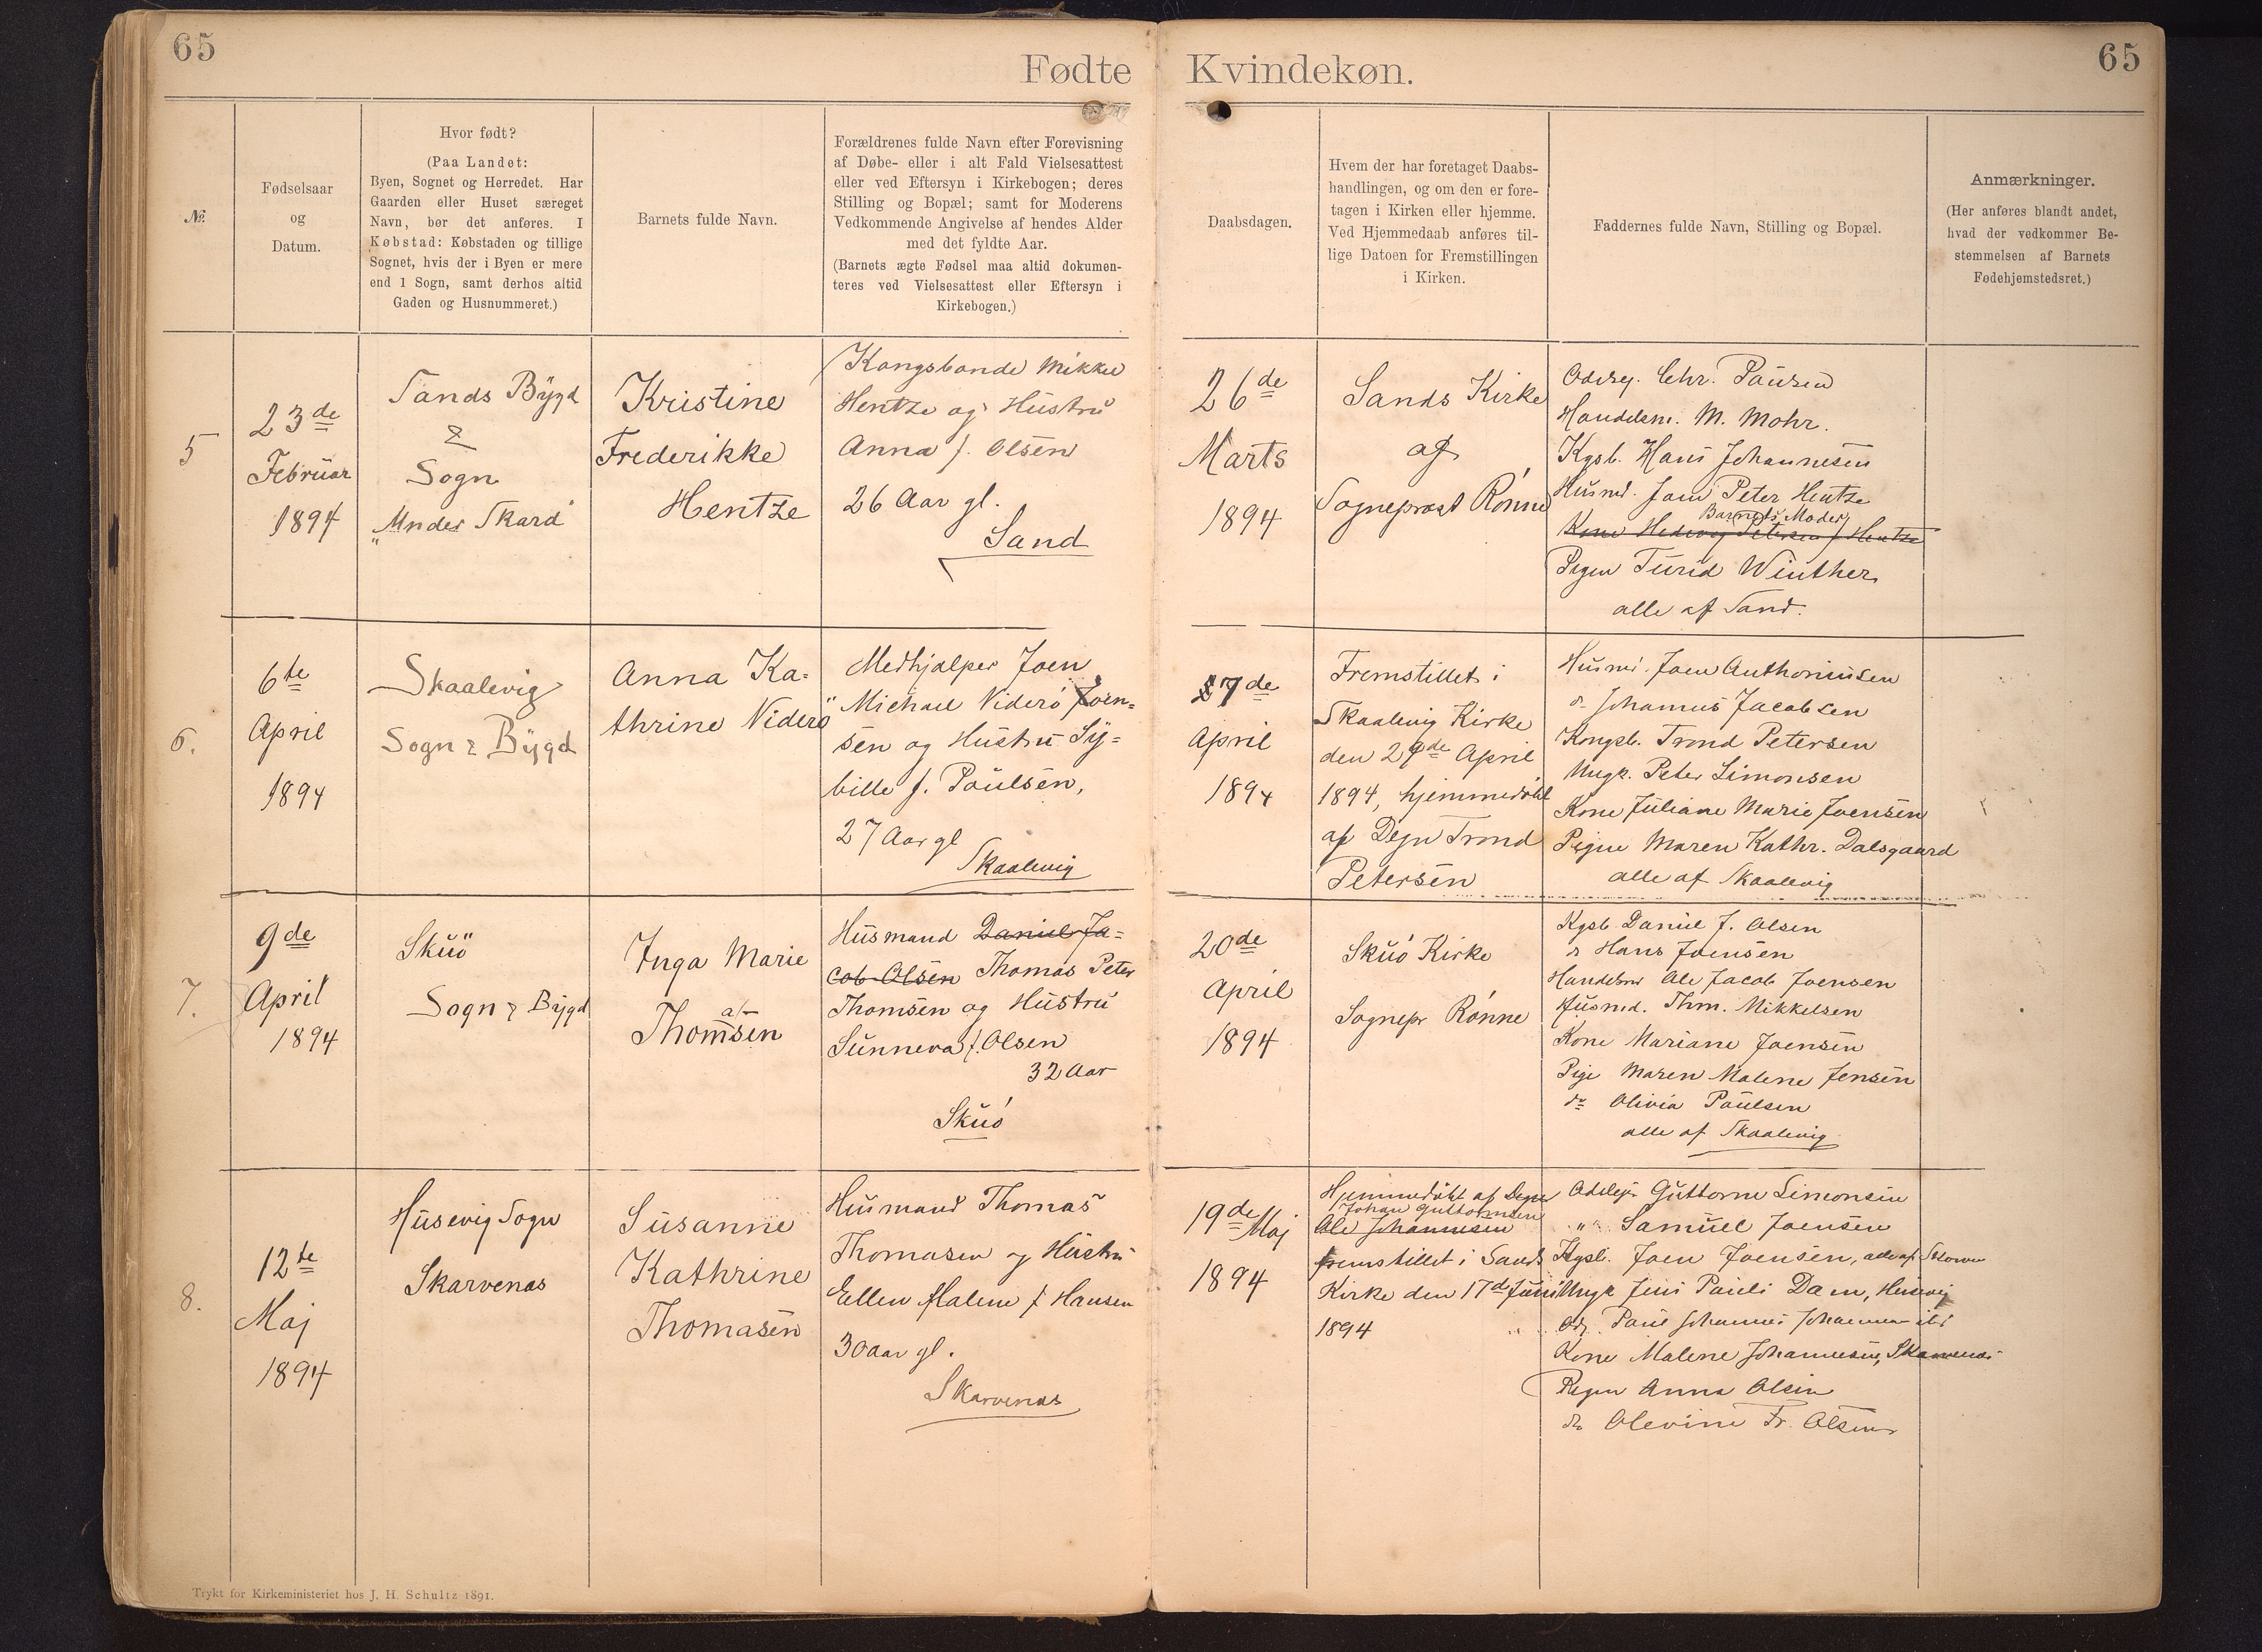 65
65
Fødte Kvindekøn.
№
Fødselsaar
og
Datum.
Hvor født?
(Paa Landet:
Byen, Sognet og Herredet. Har
Gaarden eller Huset særeget
Navn, bør det anføres. I
Købstad: Købstaden og tillige
Sognet, hvis der i Byen er mere
end 1 Sogn, samt derhos altid
Gaden og Husnummeret.)
Barnets fulde Navn.
Forældrenes fulde Navn efter Forevisning
af Døbe- eller i alt Fald Vielsesattest
eller ved Eftersyn i Kirkebogen; deres
Stilling og Bopæl; samt for Moderens
Vedkommende Angivelse af hendes Alder
med det fyldte Aar.
(Barnets ægte Fødsel maa altid dokumen-
teres ved Vielsesattest eller Eftersyn i
Kirkebogen.)
Daabsdagen.
Hvem der har foretaget Daabs-
handlingen, og om den er fore-
tagen i Kirken eller hjemme.
Ved Hjemmedaab anføres til-
lige Datoen for Fremstillingen
i Kirken.
Faddernes fulde Navn, Stilling og Bopæl.
Anmærkninger.
(Her anføres blandt andet,
hvad der vedkommer Be-
stemmelsen af Barnets
Fødehjemstedsret.)
5
23de
Februar
1894
Sands Bygd
&
Sogn
"Under Skard"
Kristine
Frederikke
Hentze
Kongsbonde Mikkel
Hentze og Hustru
Anna f. Olsen
26 Aar gl.
Sand
26de
Marts
1894
Sands Kirke
af
Sogneprast Rønne
Odelsej. Chr. Paulsen
Handelsm. M. Mohr.
Kgsb. Hans Johannesen
Husmd. Joen Peter Hentze
Barnets Moder
Kone Hedevig Petersen f Hentze
Pigen Turid Winther
alle af Sand.
6.
6te
April
1894
Skaalevig
Sogn & Bygd
Anna Ka-
thrine Viderø
Medhjalper Joen
Michael Viderø Joen-
sen og Hustru Sy-
bille f. Poulsen,
27 Aar gl
Skaalevig
7de
April
1894
Fremstillet i
Skaalevig Kirke
den 29de April
1894, hjemmedøbt
af Degn Trond
Petersen
Husmd. Joen Anthoniusen
d. Johannes Jacobsen
Kongsb. Trond Petersen
Ungk. Peter Simonsen
Kone Juliane Marie Joensen
Pigen Maren Kathr. Dalsgaard
alle af Skaalevig
7.
9de
April
1894
Skuø
Sogn & Bygd
Inga Marie
a/
Thomsen
Husmand Daniel Ja-
cob Olsen Thomas Peter
Thomsen og Hustru
Sunneva f. Olsen
32 Aar
Skuø
20de
April
1894
Skuø Kirke
Sognepr Rønne
Kgsb Daniel J. Olsen
d Hans Joensen
Handelsmd Ole Jacob Joensen
Husmd. Thm. Mikkelsen
Kone Mariane Joensen
Pige Maren Malene Jensen
do Olivia Poulsen
alle af Skaalevig
8.
12te
Maj
1894
Husevig Sogn
Skarvenas
Susanne
Kathrine
Thomasen
Husmand Thomas
Thomasen og Hustru
Ellen Malene f Hansen
30 Aar gl.
Skarvenas
19de Maj
1894
Hjemmedøbt af Degn
Johan Guttormsen
Ole Johannesen
fremstillet i Sands
Kirke den 17de Juni
1894
Odelsej. Guttorm Simonsen
" Samuel Joensen
Kgsb. Joen Joensen, alle af
Ungk Jens Pauli Dam, Husevig
Odj. Poul Johannes Johannesen ibd
Kone Malene Johannesen, Skarvenas
Pigen Anna Olsen
do Olevine Fr. Olsen
Trykt for Kirkeministeriet hos J. H. Schultz 1891.